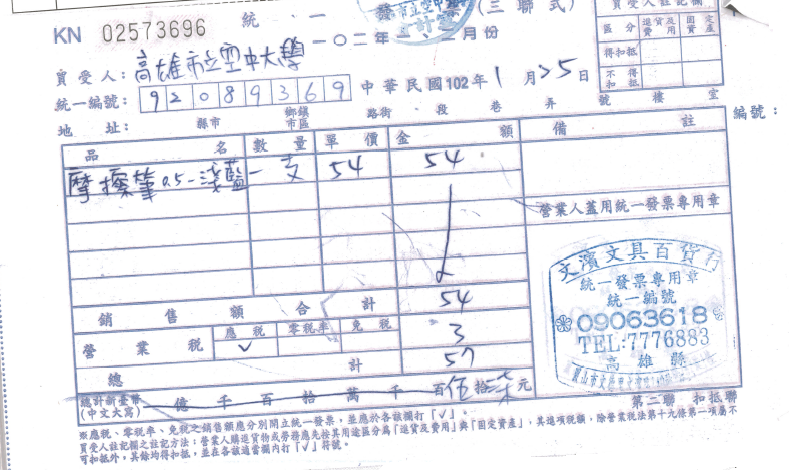 KN 02573696
統一發票(三聯式)
一○二年 二月份
買受人註記欄
區分 進貨及費用 固定資產
得扣抵
不得扣抵
買受人: 高雄市立空中大學
統一編號: 92089369
中華民國102年1月25日
地址: 縣市 鄉鎮市區 路街 段 巷 弄 號 樓 室
編號:
品名 數量 單價 金額 備註
摩擦筆0.5-淺藍 一支 54 54
營業人蓋用統一發票專用章
銷售額合計 54
營業稅 應稅 ✓ 零稅率 免稅 3
總計 57
總計新臺幣(中文大寫) 億 千 百 拾 萬 千 百伍拾柒元
文濱文具百貨行
統一發票專用章
統一編號
09063618
TEL:7776883
高雄縣
第二聯 扣抵聯
※應稅、零稅率、免稅之銷售額應分別開立統一發票,並應於各該欄打「✓」。
買受人註記欄之註記方法:營業人購進貨物或勞務應先按其用途區分為「進貨及費用」與「固定資產」,其進項稅額,除營業稅法第十九條第一項屬不
可扣抵外,其餘均得扣抵,並在各該適當欄內打「✓」符號。